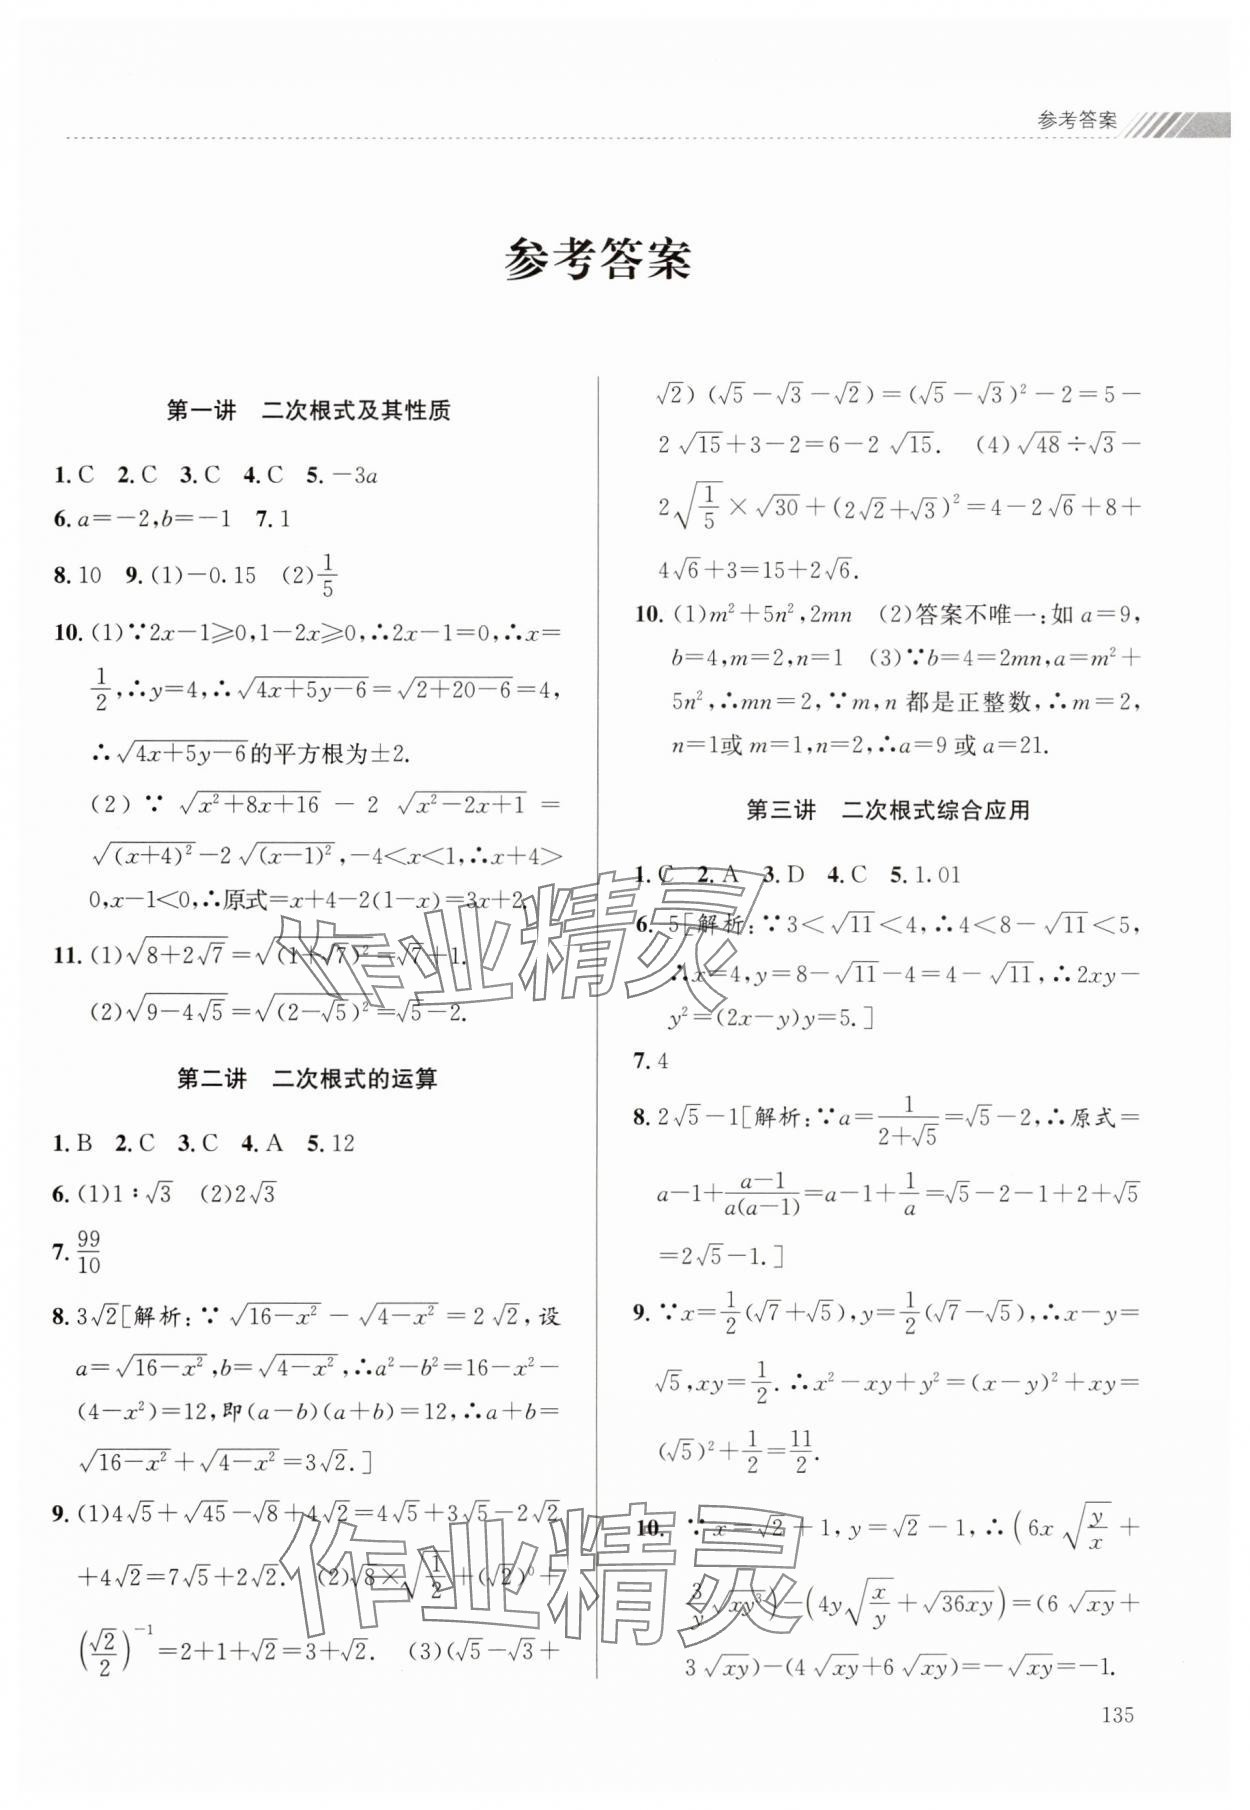 参考答案
参考答案
第一讲　二次根式及其性质
1. C　2. C　3. C　4. C　5. －3a
6. a＝－2,b＝－1　7. 1
8. 10　9. (1)－0.15　(2)1/5
10. (1)∵2x－1≥0,1－2x≥0,∴2x－1＝0,∴x＝
1/2,∴y＝4,∴√(4x＋5y－6)＝√(2＋20－6)＝4,
∴√(4x＋5y－6)的平方根为±2.
(2)∵√(x²＋8x＋16)－2√(x²－2x＋1)＝
√((x＋4)²)－2√((x－1)²),－4＜x＜1,∴x＋4＞
0,x－1＜0,∴原式＝x＋4－2(1－x)＝3x＋2.
11. (1)√(8＋2√7)＝√((1＋√7)²)＝√7＋1.
(2)√(9－4√5)＝√((2－√5)²)＝√5－2.
第二讲　二次根式的运算
1. B　2. C　3. C　4. A　5. 12
6. (1)1∶√3　(2)2√3
7. 99/10
8. 3√2[解析:∵√(16－x²)－√(4－x²)＝2√2,设
a＝√(16－x²),b＝√(4－x²),∴a²－b²＝16－x²－
(4－x²)＝12,即(a－b)(a＋b)＝12,∴a＋b＝
√(16－x²)＋√(4－x²)＝3√2.]
9. (1)4√5＋√45－√8＋4√2＝4√5＋3√5－2√2
＋4√2＝7√5＋2√2.　(2)√8×√(1/2)＋(√2)⁰＋
(√2/2)⁻¹＝2＋1＋√2＝3＋√2.　(3)(√5－√3＋
√2)(√5－√3－√2)＝(√5－√3)²－2＝5－
2√15＋3－2＝6－2√15.　(4)√48÷√3－
2√(1/5)×√30＋(2√2＋√3)²＝4－2√6＋8＋
4√6＋3＝15＋2√6.
10. (1)m²＋5n²,2mn　(2)答案不唯一:如a＝9,
b＝4,m＝2,n＝1　(3)∵b＝4＝2mn,a＝m²＋
5n²,∴mn＝2,∵m,n都是正整数,∴m＝2,
n＝1或m＝1,n＝2,∴a＝9或a＝21.
第三讲　二次根式综合应用
1. C　2. A　3. D　4. C　5. 1.01
6. 5[解析:∵3＜√11＜4,∴4＜8－√11＜5,
∴x＝4,y＝8－√11－4＝4－√11,∴2xy－
y²＝(2x－y)y＝5.]
7. 4
8. 2√5－1[解析:∵a＝1/(2＋√5)＝√5－2,∴原式＝
a－1＋(a－1)/(a(a－1))＝a－1＋1/a＝√5－2－1＋2＋√5
＝2√5－1.]
9. ∵x＝1/2(√7＋√5),y＝1/2(√7－√5),∴x－y＝
√5,xy＝1/2.∴x²－xy＋y²＝(x－y)²＋xy＝
(√5)²＋1/2＝11/2.
10. ∵x＝√2＋1,y＝√2－1,∴(6x√(y/x)＋
3/y√(xy³))－(4y√(x/y)＋√(36xy))＝(6√(xy)＋
3√(xy))－(4√(xy)＋6√(xy))＝－√(xy)＝－1.
135
作业精灵
作业精灵